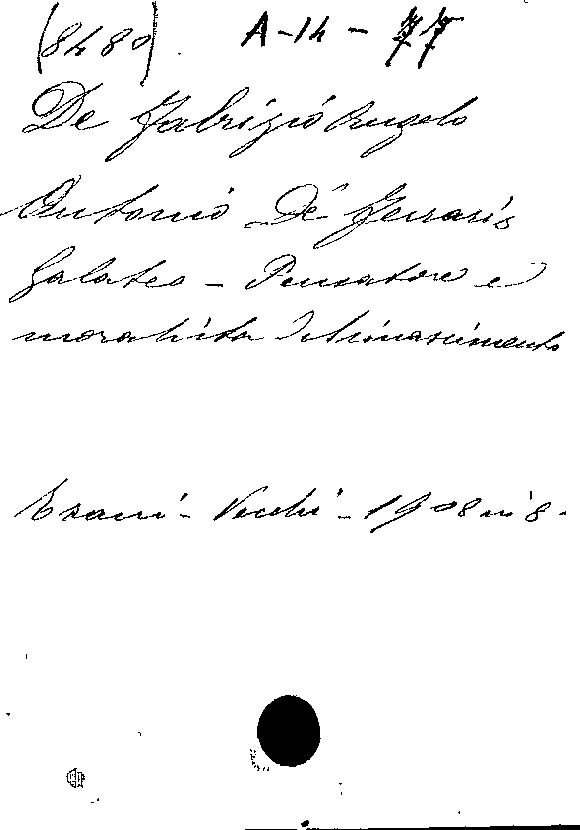 (8480). A-14-77
De Fabrizio Angelo
Antonio De Ferraris
Galateo - Pensatore e
moralista del rinascimento
Trani - Vecchi - 1908 in 8.